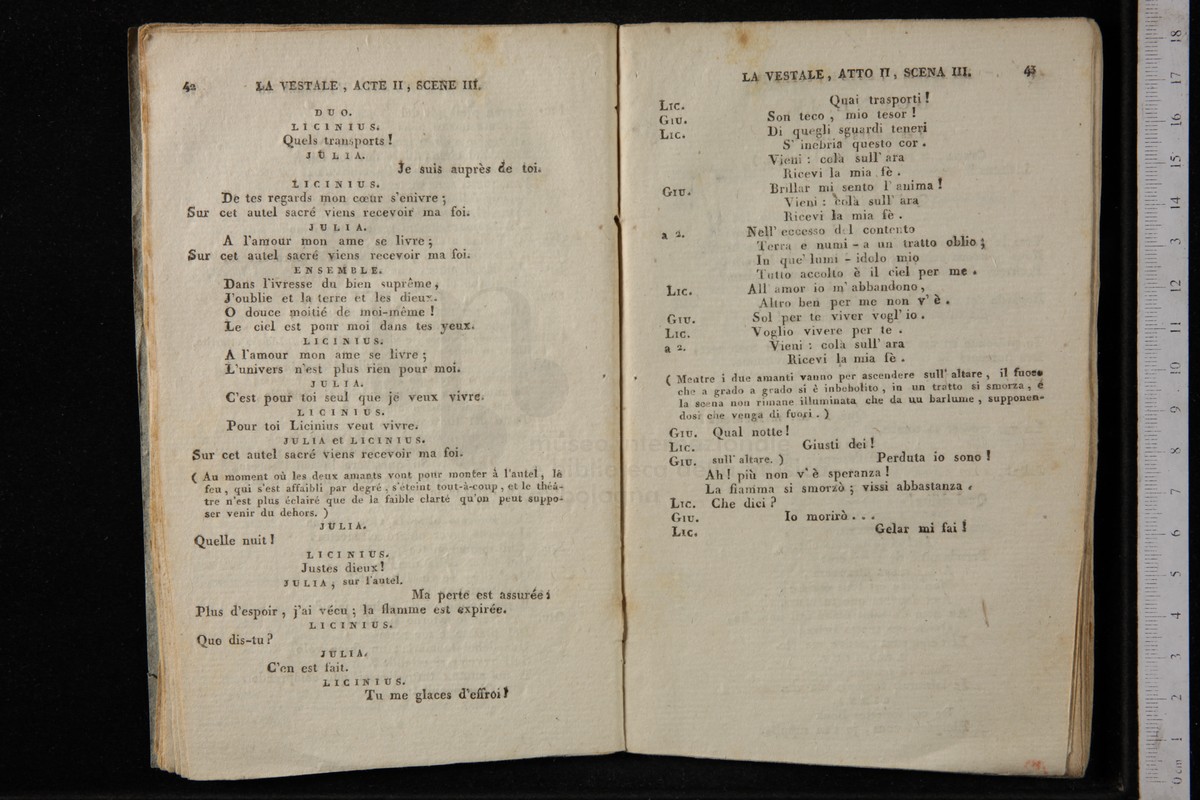 42 LA VESTALE, ACTE II, SCENE III.
DUO.
LICINIUS.
Quels transports !
JULIA.
Je suis auprès de toi.
LICINIUS.
De tes regards mon cœur s'enivre ;
Sur cet autel sacré viens recevoir ma foi.
JULIA.
A l'amour mon ame se livre ;
Sur cet autel sacré viens recevoir ma foi.
ENSEMBLE.
Dans l'ivresse du bien suprême,
J'oublie et la terre et les dieux.
O douce moitié de moi-même !
Le ciel est pour moi dans tes yeux.
LICINIUS.
A l'amour mon ame se livre ;
L'univers n'est plus rien pour moi.
JULIA.
C'est pour toi seul que je veux vivre.
LICINIUS.
Pour toi Licinius veut vivre.
JULIA et LICINIUS.
Sur cet autel sacré viens recevoir ma foi.
( Au moment où les deux amants vont pour monter à l'autel, le
feu, qui s'est affaibli par degré, s'éteint tout-à-coup, et le théâ-
tre n'est plus éclairé que de la faible clarté qu'on peut suppo-
ser venir du dehors. )
JULIA.
Quelle nuit !
LICINIUS.
Justes dieux !
JULIA, sur l'autel.
Ma perte est assurée ;
Plus d'espoir, j'ai vécu ; la flamme est expirée.
LICINIUS.
Quo dis-tu ?
JULIA.
C'en est fait.
LICINIUS.
Tu me glaces d'effroi !
LA VESTALE, ATTO II, SCENA III. 43
Lic. Quai trasporti !
Giu. Son teco, mio tesor !
Lic. Di quegli sguardi teneri
S' inebria questo cor.
Vieni : colà sull' ara
Ricevi la mia fè.
Giu. Brillar mi sento l' anima !
Vieni : colà sull' ara
Ricevi la mia fè.
a 2. Nell' eccesso del contento
Terra e numi - a un tratto oblio ;
In que' lumi - idolo mio
Tutto accolto è il ciel per me.
Lic. All' amor io m' abbandono,
Altro ben per me non v' è.
Giu. Sol per te viver vogl' io.
Lic. Voglio vivere per te.
a 2. Vieni : colà sull' ara
Ricevi la mia fè.
( Mentre i due amanti vanno per ascendere sull' altare, il fuoco
che a grado a grado si è inbebolito, in un tratto si smorza, e
la scena non rimane illuminata che da un barlume, supponen-
dosi che venga di fuori. )
Giu. Qual notte !
Lic. Giusti dei !
Giu. sull' altare. ) Perduta io sono !
Ah ! più non v' è speranza !
La fiamma si smorzò ; vissi abbastanza.
Lic. Che dici ?
Giu. Io morirò...
Lic. Gelar mi fai !
museo internazionale
biblioteca
bologna
0 cm 1 2 3 4 5 6 7 8 9 10 11 12 13 14 15 16 17 18